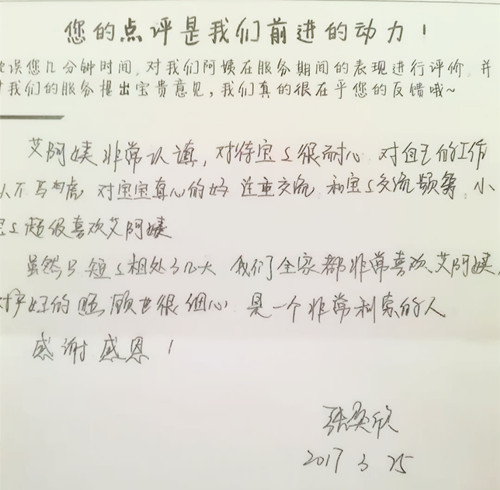 您的点评是我们前进的动力！
耽误您几分钟时间，对我们阿姨在服务期间的表现进行评价，并
对我们的服务提出宝贵意见，我们真的很在乎您的反馈哦~
艾阿姨非常认真，对待宝宝很耐心，对自己的工作
从不马虎，对宝宝真心的好 注重交流 和宝宝交流频繁，小
宝宝超级喜欢艾阿姨
虽然只短短相处了几天 我们全家都非常喜欢艾阿姨，
对产妇的照顾也很细心 是一个非常利索的人
感谢 感恩！
张 欣
2017 3 25